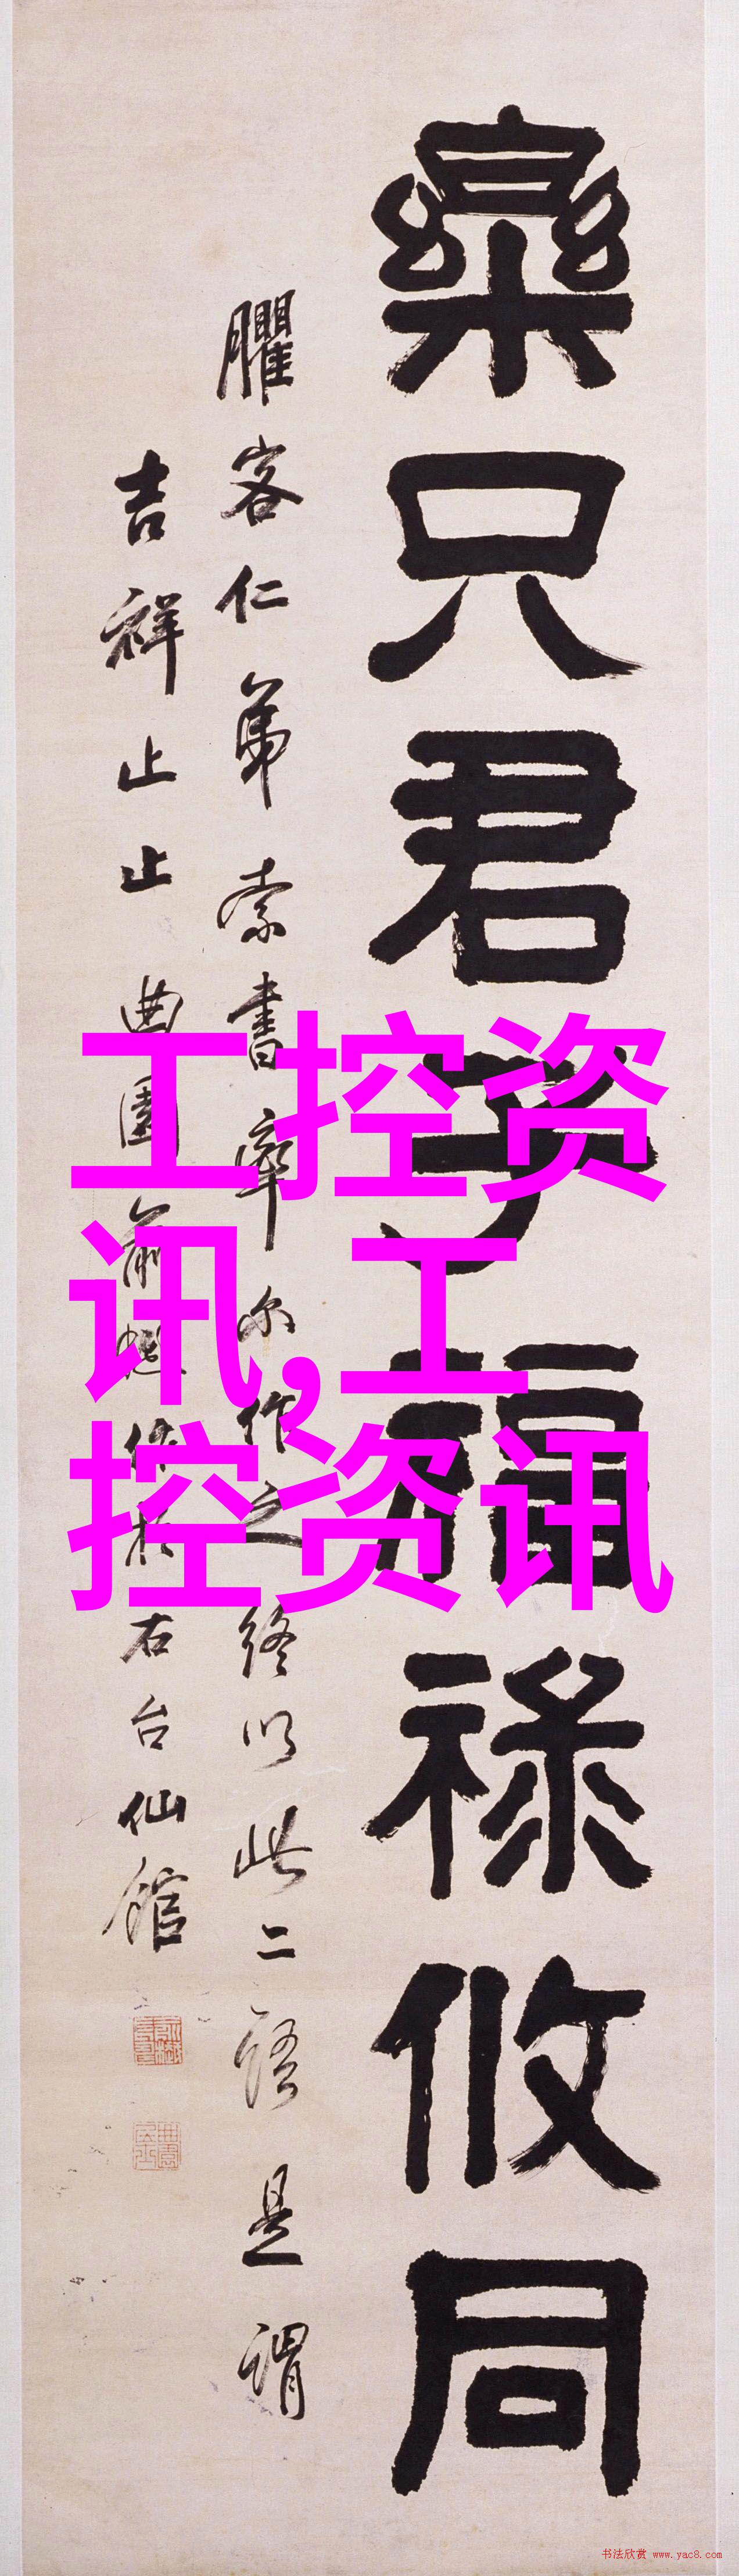 樂只君子福祿攸同
臞客仁弟索書率尔作之終以此二語是謂
吉祥止止曲園俞樾
右台仙館
工控资
讯,工
控资讯
书法欣赏 www.yac8.com